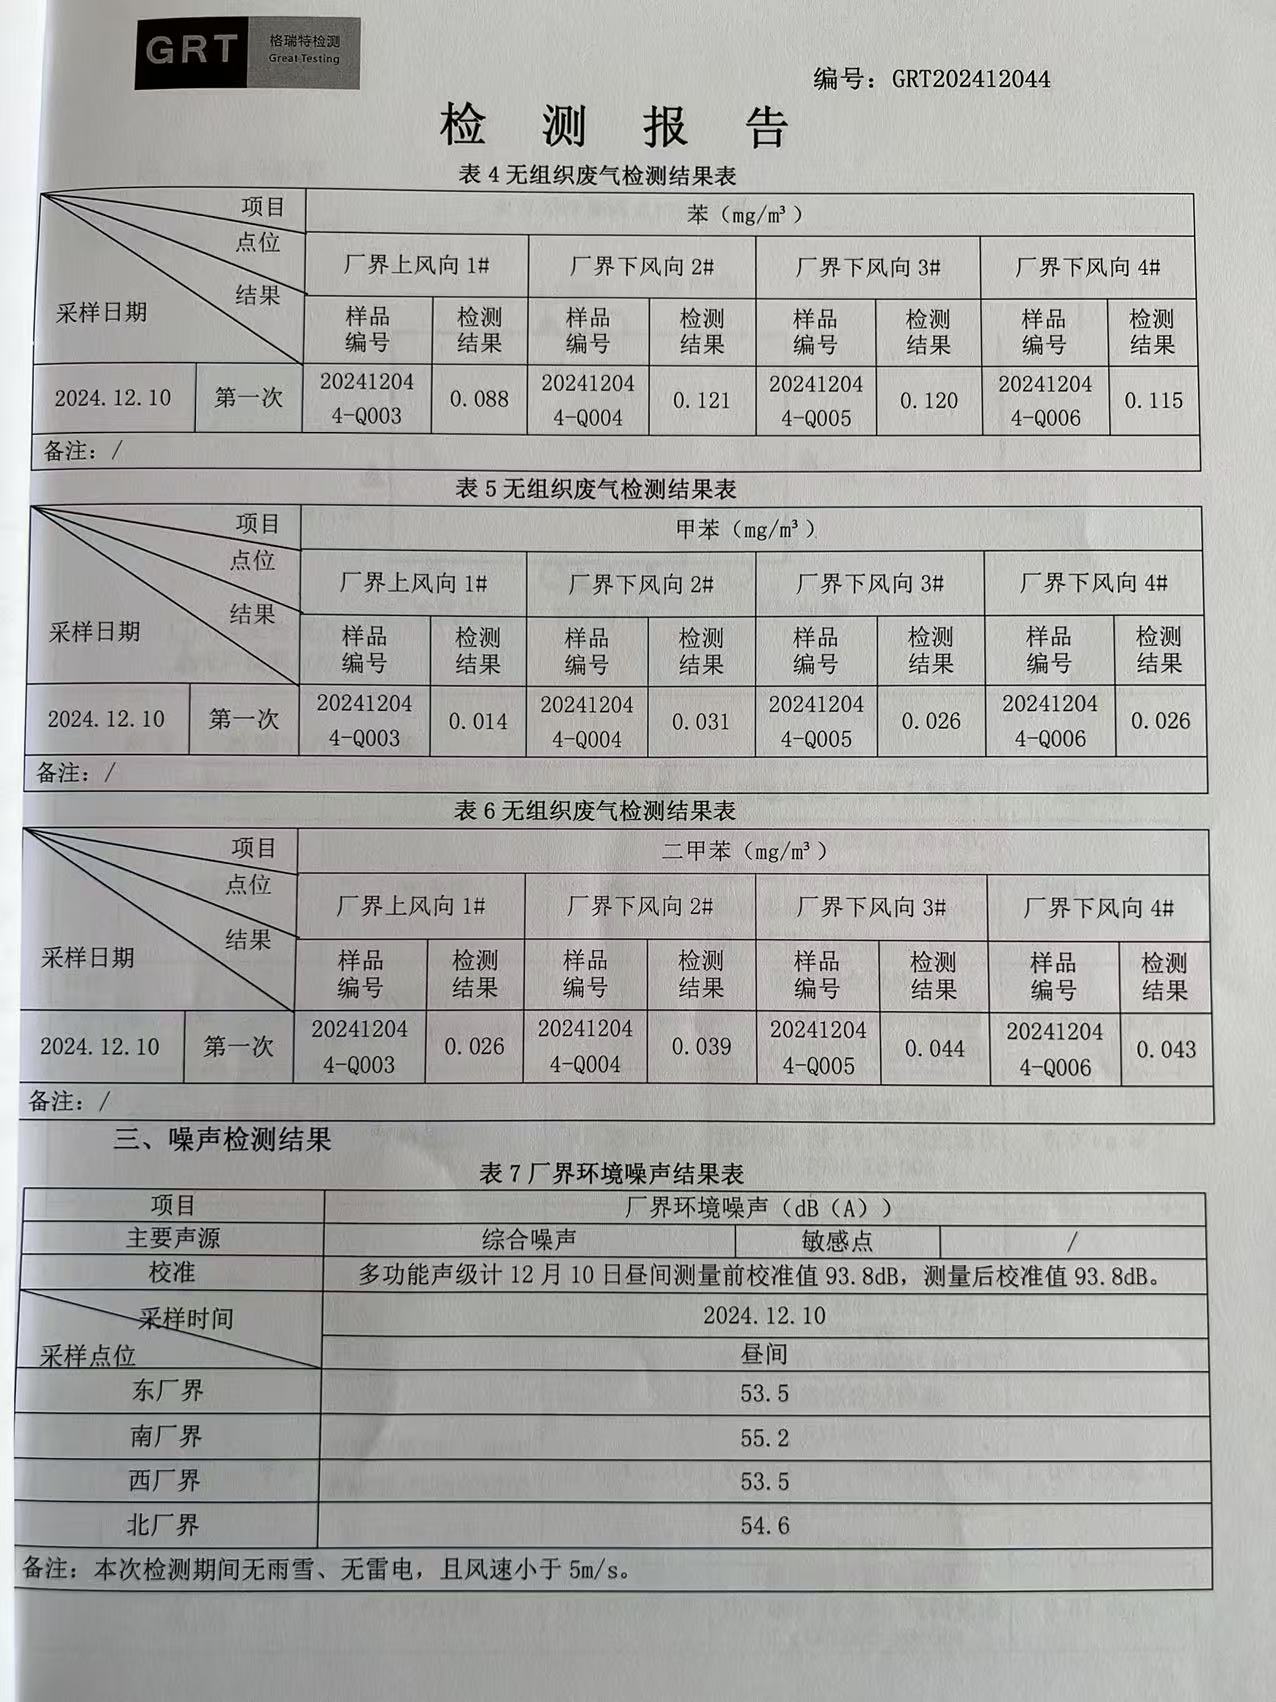 GRT 格瑞特检测
Great Testing
编号：GRT202412044
检 测 报 告
表 4 无组织废气检测结果表
项目 苯（mg/m³）
点位
结果
采样日期
厂界上风向 1# 厂界下风向 2# 厂界下风向 3# 厂界下风向 4#
样品编号 检测结果 样品编号 检测结果 样品编号 检测结果 样品编号 检测结果
2024.12.10 第一次 202412044-Q003 0.088 202412044-Q004 0.121 202412044-Q005 0.120 202412044-Q006 0.115
备注：/
表 5 无组织废气检测结果表
项目 甲苯（mg/m³）
点位
结果
采样日期
厂界上风向 1# 厂界下风向 2# 厂界下风向 3# 厂界下风向 4#
样品编号 检测结果 样品编号 检测结果 样品编号 检测结果 样品编号 检测结果
2024.12.10 第一次 202412044-Q003 0.014 202412044-Q004 0.031 202412044-Q005 0.026 202412044-Q006 0.026
备注：/
表 6 无组织废气检测结果表
项目 二甲苯（mg/m³）
点位
结果
采样日期
厂界上风向 1# 厂界下风向 2# 厂界下风向 3# 厂界下风向 4#
样品编号 检测结果 样品编号 检测结果 样品编号 检测结果 样品编号 检测结果
2024.12.10 第一次 202412044-Q003 0.026 202412044-Q004 0.039 202412044-Q005 0.044 202412044-Q006 0.043
备注：/
三、噪声检测结果
表 7 厂界环境噪声结果表
项目 厂界环境噪声（dB（A））
主要声源 综合噪声 敏感点 /
校准 多功能声级计 12 月 10 日昼间测量前校准值 93.8dB，测量后校准值 93.8dB。
采样时间 2024.12.10
采样点位 昼间
东厂界 53.5
南厂界 55.2
西厂界 53.5
北厂界 54.6
备注：本次检测期间无雨雪、无雷电，且风速小于 5m/s。